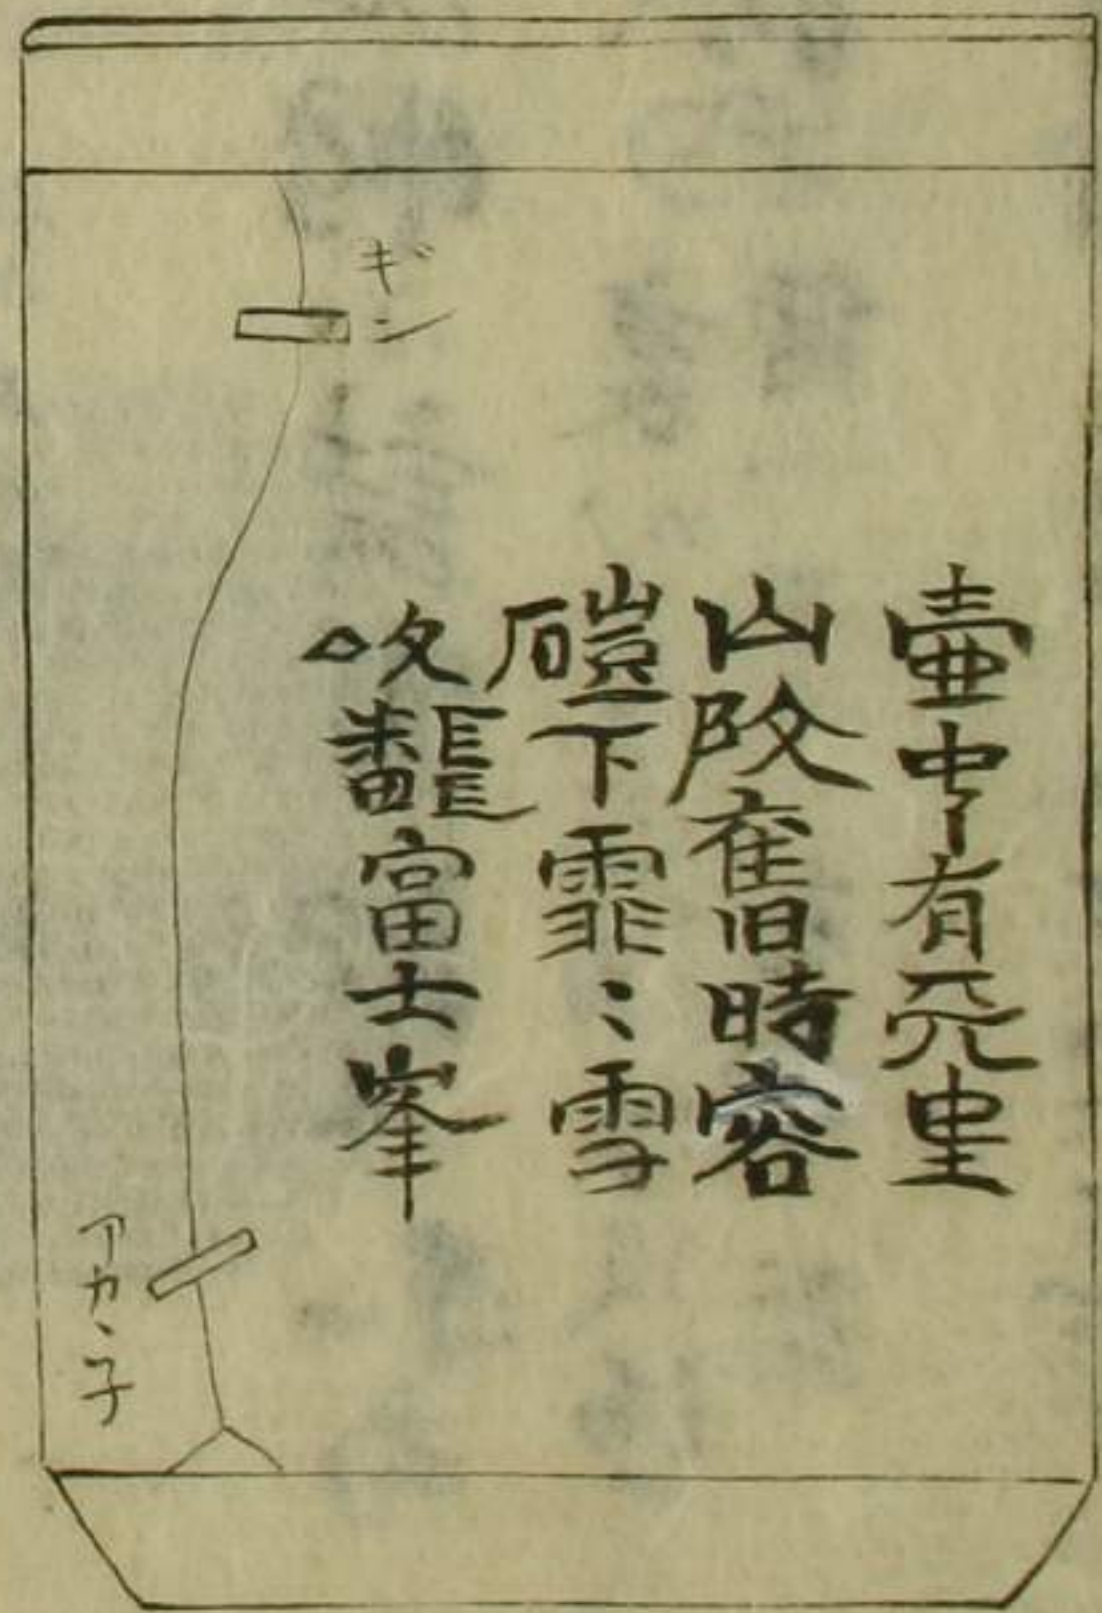 壷中有兲埊
山改舊時容
磑下霏〻雪
吹飜富士峯
ギン
アカヽ子